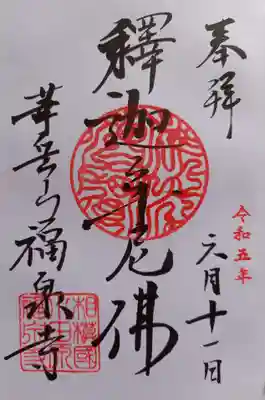 奉拝
令和五年
六月十一日
釋迦牟尼佛
華岳山福泉寺
相模國